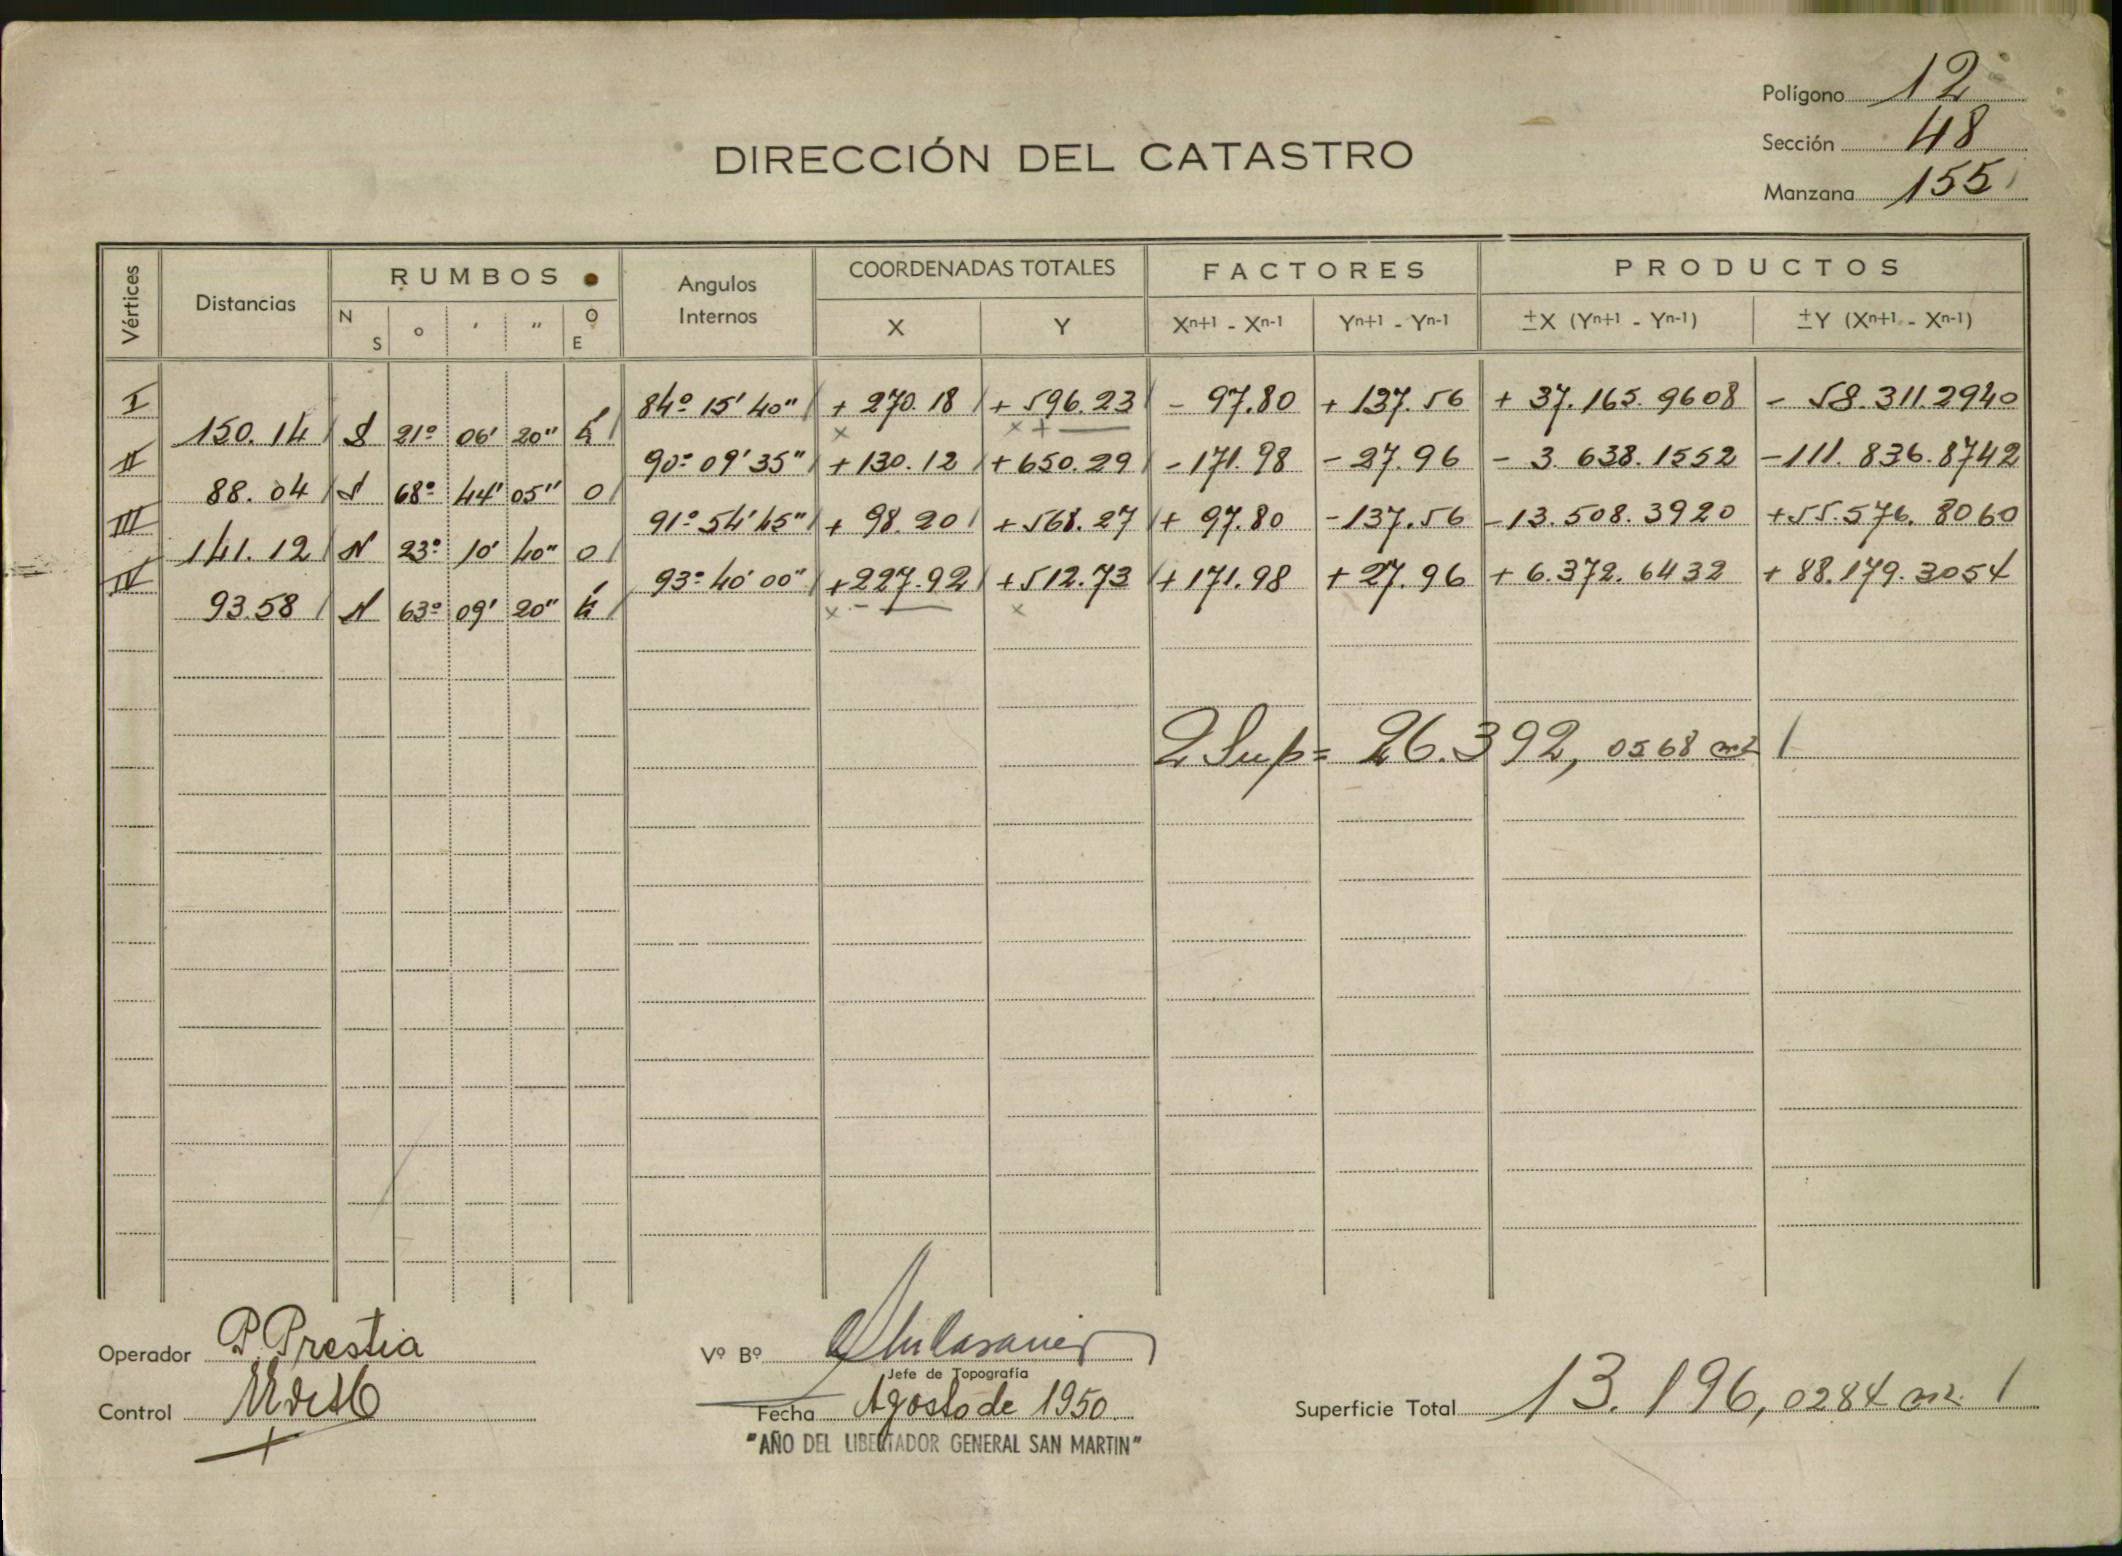 Polígono 12
Sección 48
Manzana 155
DIRECCIÓN DEL CATASTRO
Vértices Distancias RUMBOS Angulos Internos COORDENADAS TOTALES FACTORES PRODUCTOS
N S ° ' " O E X Y Xn+1 - Xn-1 Yn+1 - Yn-1 ±X (Yn+1 - Yn-1) ±Y (Xn+1 - Xn-1)
I 84° 15' 40" + 270.18 + 596.23 - 97.80 + 137.56 + 37.165.9608 - 58.311.2940
150.14 S 21° 06' 20" E
II 90° 09' 35" + 130.12 + 650.29 - 171.98 - 27.96 - 3.638.1552 - 111.836.8742
88.04 S 68° 44' 05" O
III 91° 54' 45" + 98.20 + 568.27 + 97.80 - 137.56 - 13.508.3920 + 55.576.8060
141.12 N 23° 10' 40" O
IV 93° 40' 00" + 227.92 + 512.73 + 171.98 + 27.96 + 6.372.6432 + 88.179.3054
93.58 N 63° 09' 20" E
2 Sup = 26.392,0568 m2
Operador P. Prestia
Control
Vº Bº
Jefe de Topografía
Fecha Agosto de 1950
"AÑO DEL LIBERTADOR GENERAL SAN MARTIN"
Superficie Total 13.196,0284 m2